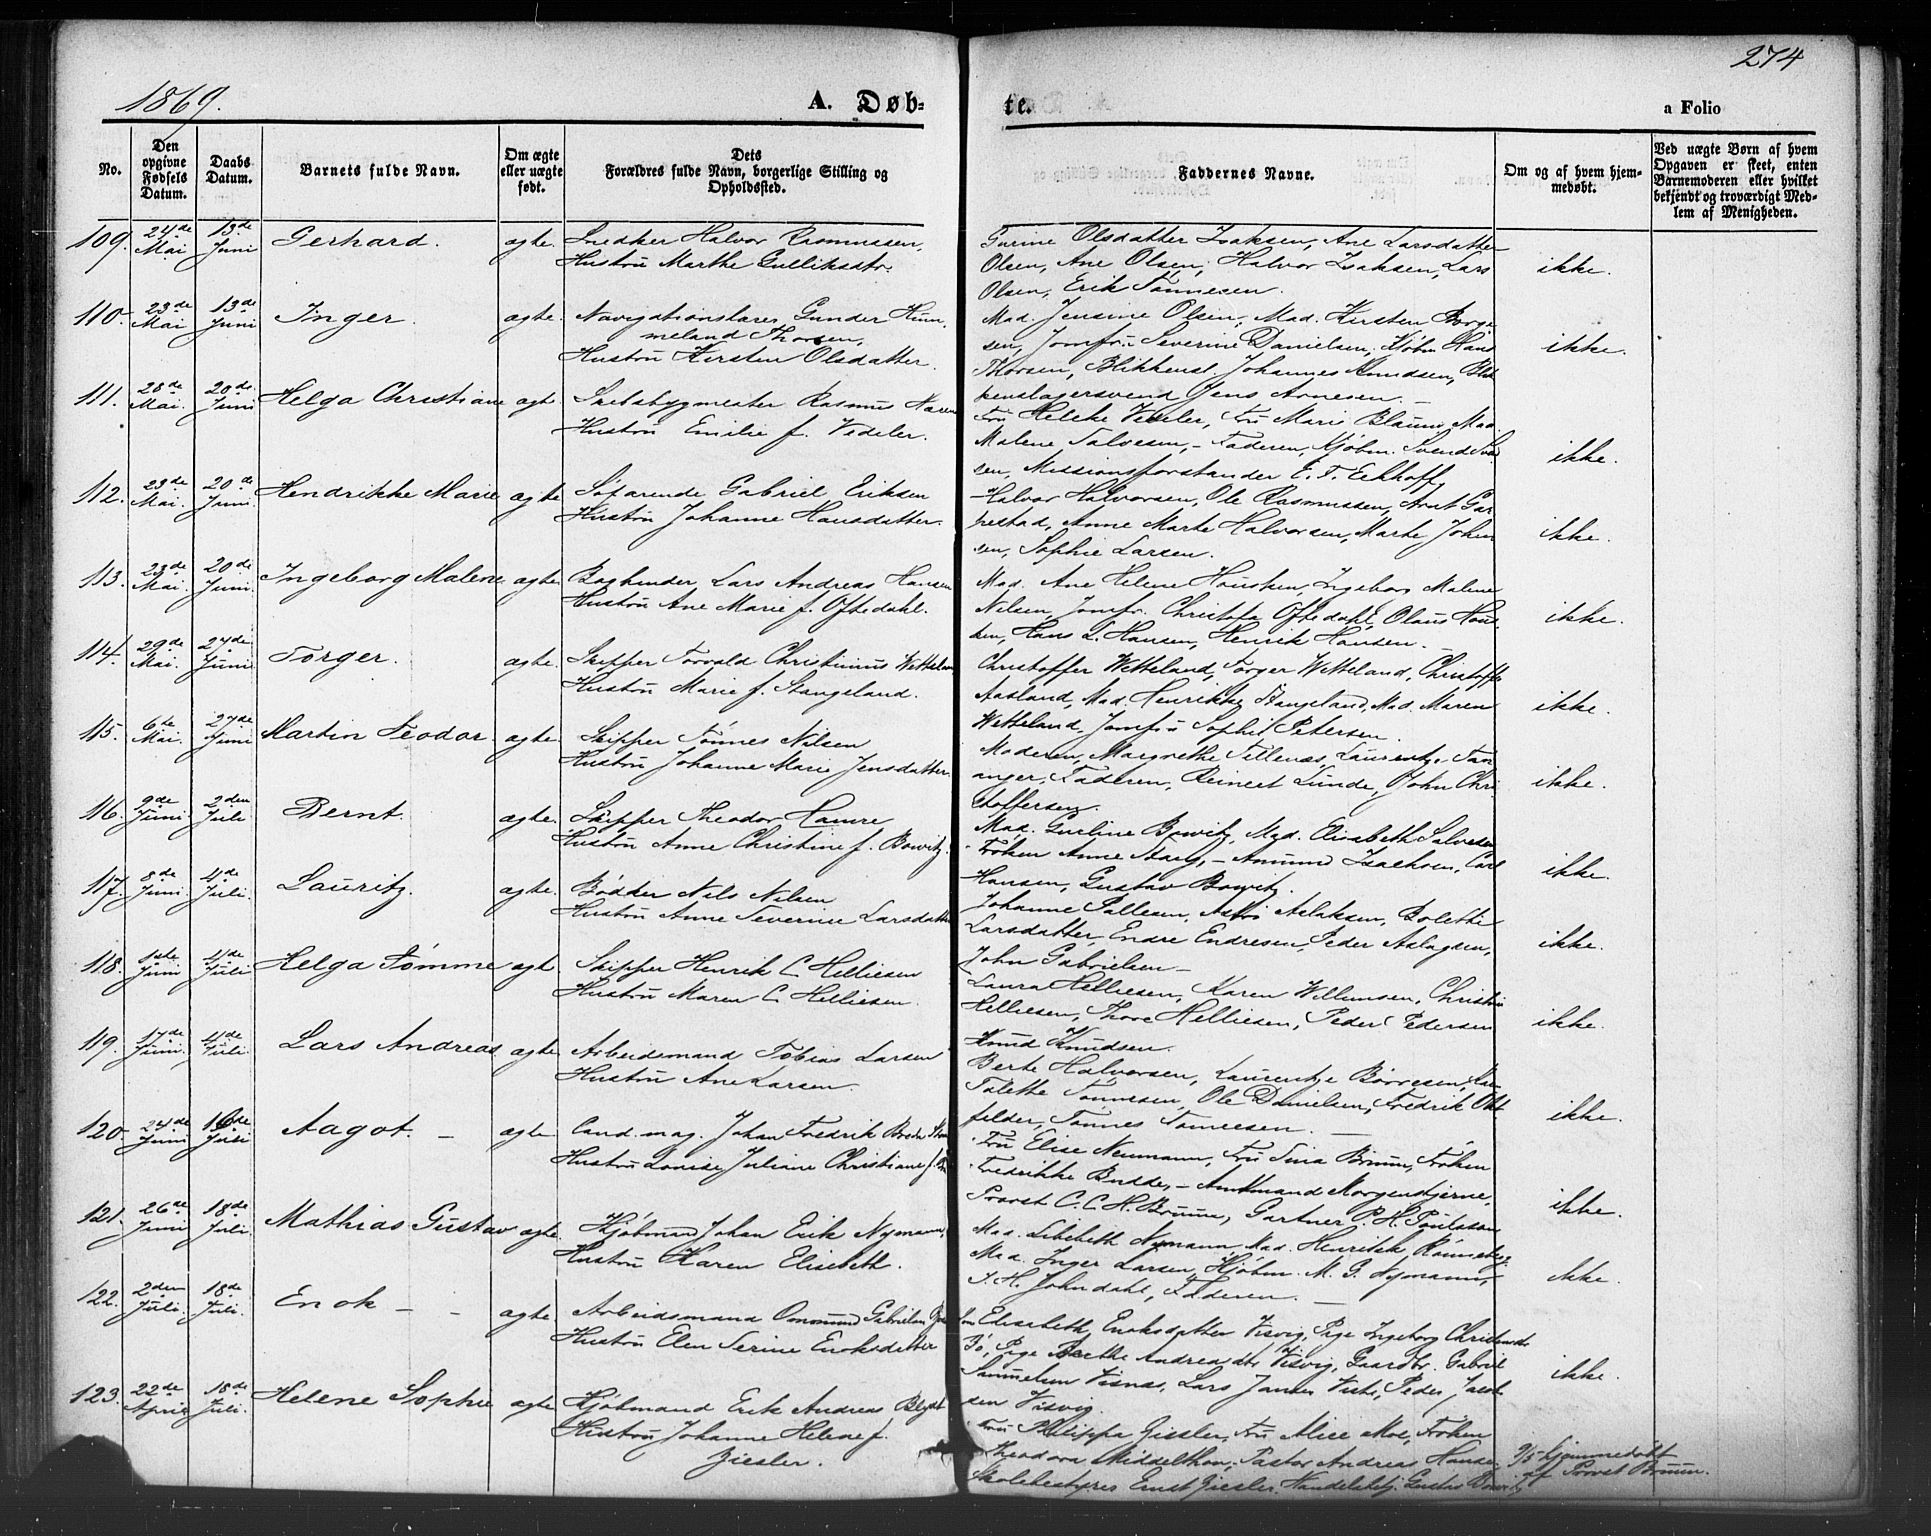 1869.
A. Døb-
te.
274
a Folio
No.
Den opgivne Fødsels Datum.
Daabs Datum.
Barnets fulde Navn.
Om ægte eller uægte født.
Dets Forældres fulde Navn, borgerlige Stilling og Opholdssted.
Faddernes Navne.
Om og af hvem hjemmedøbt.
Ved uægte Børn af hvem Opgaven er skeet, enten Barnemoderen eller hvilket bekjendt og troværdigt Medlem af Menigheden.
109. 24de Mai 13de Juni Gerhard. ægte. Snedker Halvor Rasmussen,
Hustru Marthe Gulliksdtr.
Gurine Olsdatter Isaksen, Ane Larsdatter
Olsen, Ane Olsen, Halvor Isaksen, Lars
Olsen, Erik Tønnesen.
ikke.
110. 23de Mai 13de Juni Inger. ægte. Navigationslærer Gunder Hum-
meland Thorsen,
Hustru Kirsten Olsdatter.
Mad. Jensine Olsen, Mad. Kirsten Borge-
sen, Jomfru Severine Danielsen, Kjøbm. Hans
Thorsen, Blikkensl. Johannes Amundsen, Blik
kenslagersvend Jens Arnesen.
ikke.
111. 28de Mai. 20de Juni Helga Christiane ægte Skibsbygmester Rasmus
Hustru Emilie f. Vedeler.
Fru Helche Vedeler, Fru Marie Blaum, Mad.
Malene Salvesen, - Faderen, Kjøbm. Svend
sen, Missionsforstander E. F. Eckhoff,
ikke.
112. 23de Mai. 20de Juni Hendrikke Marie ægte Søfarende Gabriel Eriksen
Hustru Johanne Hansdatter.
Halvor Halvorsen, Ole Rasmussen, Arnt Gar
pestad, Anne Marte Halvorsen, Marte Johan
sen, Sophie Larsen.
ikke.
113. 23de Mai. 20de Juni. Ingeborg Malene ægte Bogbinder Lars Andreas Hansen
Hustru Ane Marie f. Oftedahl.
Mad. Ane Helene Housken, Ingeborg Malene
Nilsen, Jomfr. Christofa Oftedahl, Olaus Hous
ken, Hans L. Hansen, Henrik Hansen.
ikke.
114. 29de Mai. 27de Juni Torger. ægte. Skipper Torvald Christinius Witteland,
Hustru Marie f. Stangeland.
Christoffer Witteland, Torger Witteland, Christoffer
Aasland, Mad. Henrikke Stangeland, Mad. Maren
Witteland, Jomfru Sophie Petersen.
ikke.
115. 6te Mai. 27de Juni Martin Teodor. ægte. Skipper Tønnes Nilsen
Hustru Johanne Marie Jensdatter.
Moderen, Margrethe Tillenæs, Laurentze Tan
anger, Faderen, Reinert Lunde, John Chri
stoffersen.
ikke.
116. 9de Juni 2den Juli Bernt. ægte. Skipper Theodor Hamre
Hustru Anne Christine f. Bowitz.
Mad. Gurline Bowitz, Mad. Elisabeth Salvesen
Frøken Anne Stang, - Amund Isachsen, Carl
Hansen, Gustav Bowitz.
ikke.
117. 8de Juni. 4de Juli. Lauritz. ægte. Bødker Nils Nilsen
Hustru Anne Severine Larsdatter
Johanne Pallesen, Aslaksen, Bolette
Larsdatter, Endre Endresen, Peder Aslagsen,
John Gabrielsen -
ikke.
118. 1ste Juni 4de Juli Helga Tømme ægte Skipper Henrik C. Helliesen
Hustru Maren C. Helliesen.
Laura Helliesen, Karen Willumsen, Christine
Helliesen, Thore Helliesen, Peder Pedersen
Knud Knudsen.
ikke.
119. 17de Juni. 4de Juli Lars Andreas ægte Arbeidsmand Tobias Larsen
Hustru Ane Larsen.
Berte Halvorsen, Laurentze Børresen,
Talette Tønnesen, Ole Danielsen, Fredrik Old
felder, Tønnes Tønnesen.
ikke.
120. 24de Juni 16de Juli Aagot. - ægte Cand. mag. Johan Fredrik Breda
Hustru Louise Juliane Christiane f.
Fru Elise Neumann, Fru Sina Bruun, Frøken
Fredrikke Budde, - Amtmand Morgenstjerne,
Provst C. C. H. Bruun, Gartner P. H. Poulsson
ikke.
121. 26de Juni 18de Juli. Mathias Gustav ægte. Kjøbmand Johan Erik Nymann,
Hustru Karen Elisebeth.
Mad. Lisebeth Nymann, Mad. Henrikke Rønneberg,
Mad. Inger Larsen, Kjøbm. M. G. Nymann,
J. H. Johndahl, Faderen. -
ikke.
122. 2den Juli. 18de Juli. Enok - - ægte Arbeidsmand Ommund Gabrielsen
Hustru Elen Serine Enoksdatter
Elisebeth Enoksdatter Visvig, Pige Ingeborg Christensdtr
Bø, Pige Berthe Andreasdtr Visvig, Gaardbr. Gabriel
Samuelsen Visnæs, Lars Jansen Viste, Peder Jacob
sen Visvig.
ikke.
123. 22de April 18de Juli. Helene Sophie ægte Kjøbmand Erik Andreas Blydt
Hustru Johanne Helene f.
Ziesler.
Fru Philippa Ziesler, Fru Alice Moe, Frøken
Theodora Middelthon, Pastor Andreas Hansen,
Skolebestyrer Ernst Ziesler, Handelsbetj. Gustav Bowitz
9/5 hjemmedøbt
af Provst Bruun.